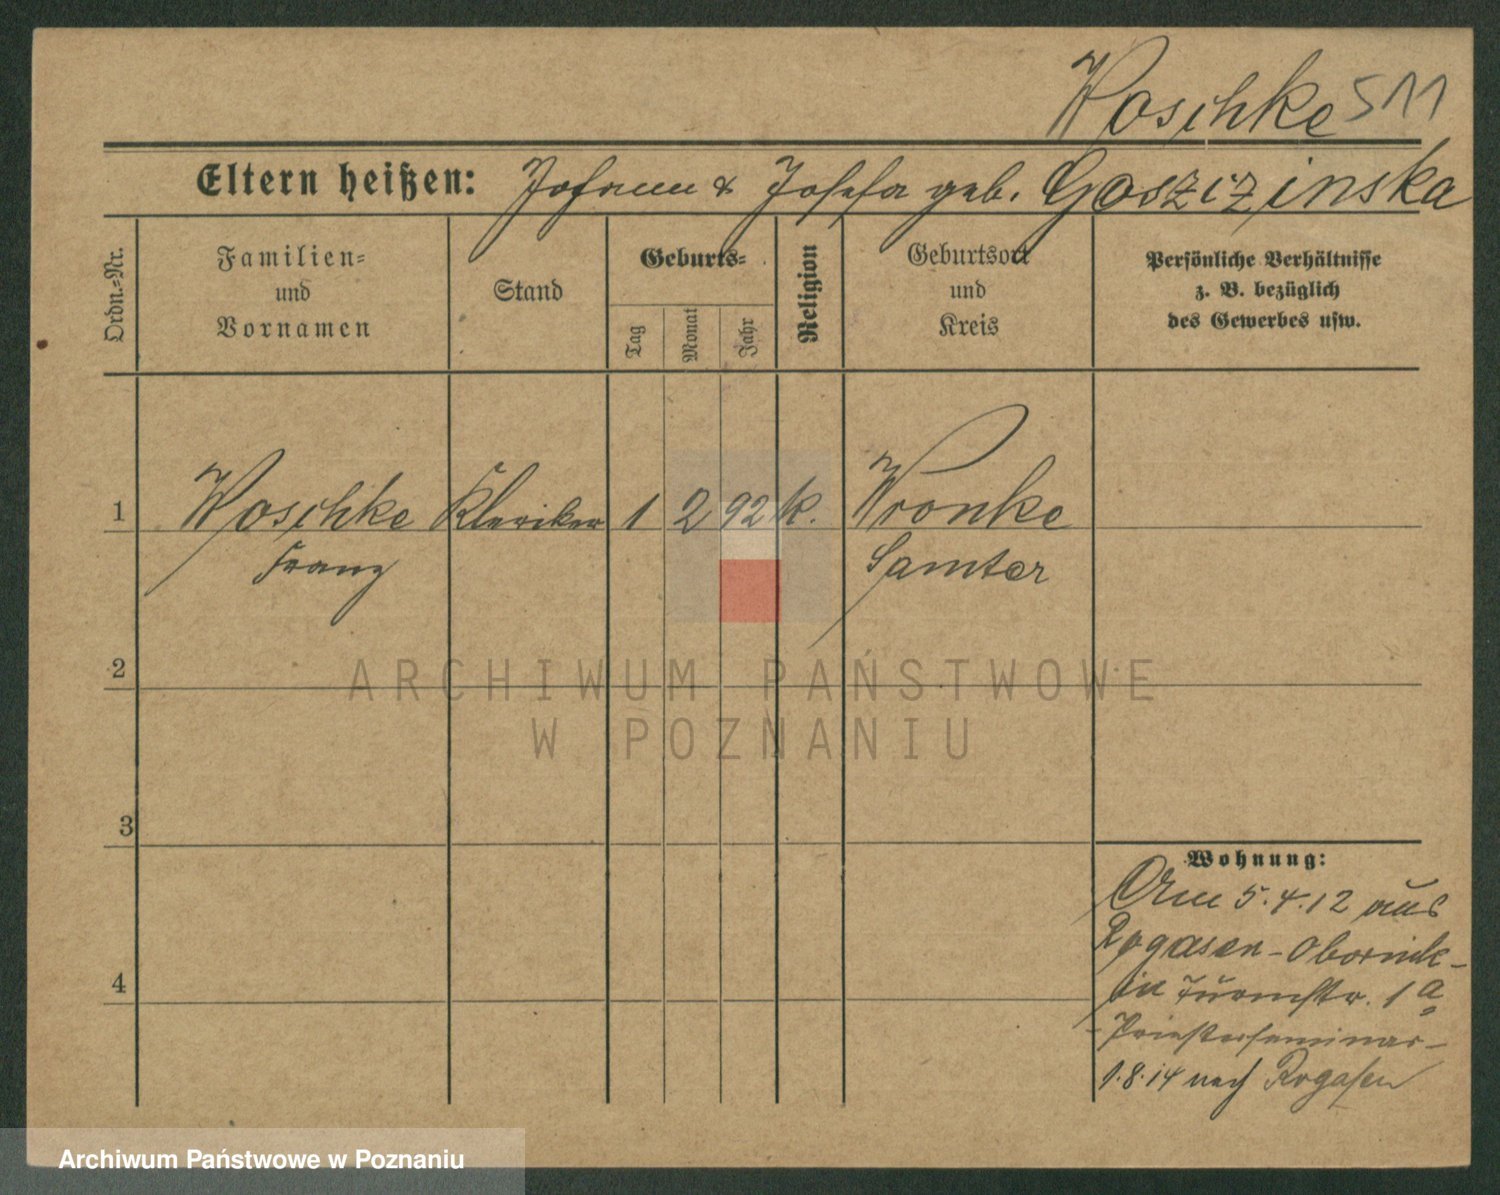 Woschke 511
Eltern heißen: Johann & Josefa geb. Goszizinska
Ordn.-Nr.
Familien-
und
Vornamen
Stand
Geburts-
Tag
Monat
Jahr
Religion
Geburtsort
und
Kreis
Persönliche Verhältnisse
z. B. bezüglich
des Gewerbes usw.
1 Woschke Kleriker 1 2 92 k. Wronke
Franz Samter
2
ARCHIWUM PAŃSTWOWE
W POZNANIU
3
Wohnung:
Am 5.4.12 aus
Rogasen-Obornik-
in Turmstr. 1a
-Priesterseminar-
4
1.8.14 nach Rogasen
Archiwum Państwowe w Poznaniu